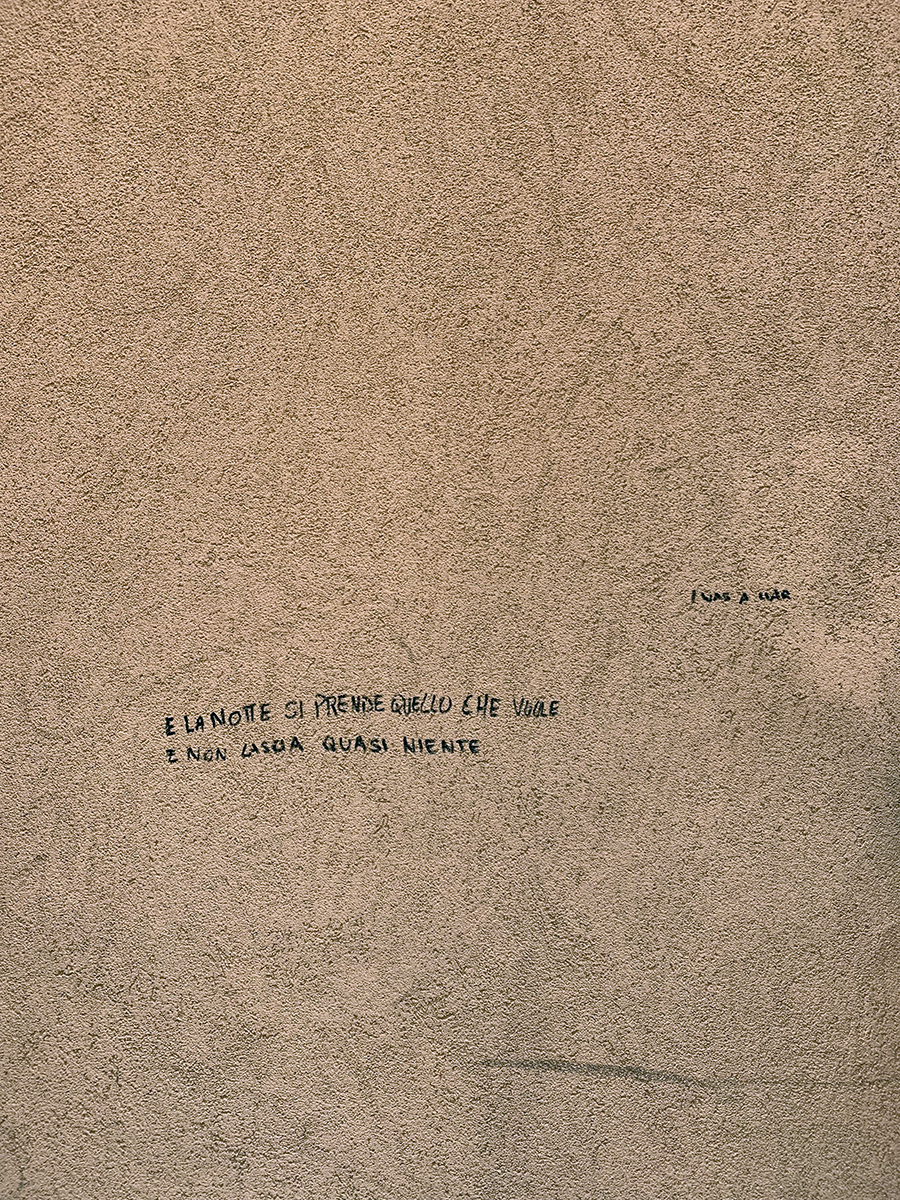 I WAS A LIAR
E LA NOTTE SI PRENDE QUELLO CHE VUOLE
E NON LASCIA QUASI NIENTE